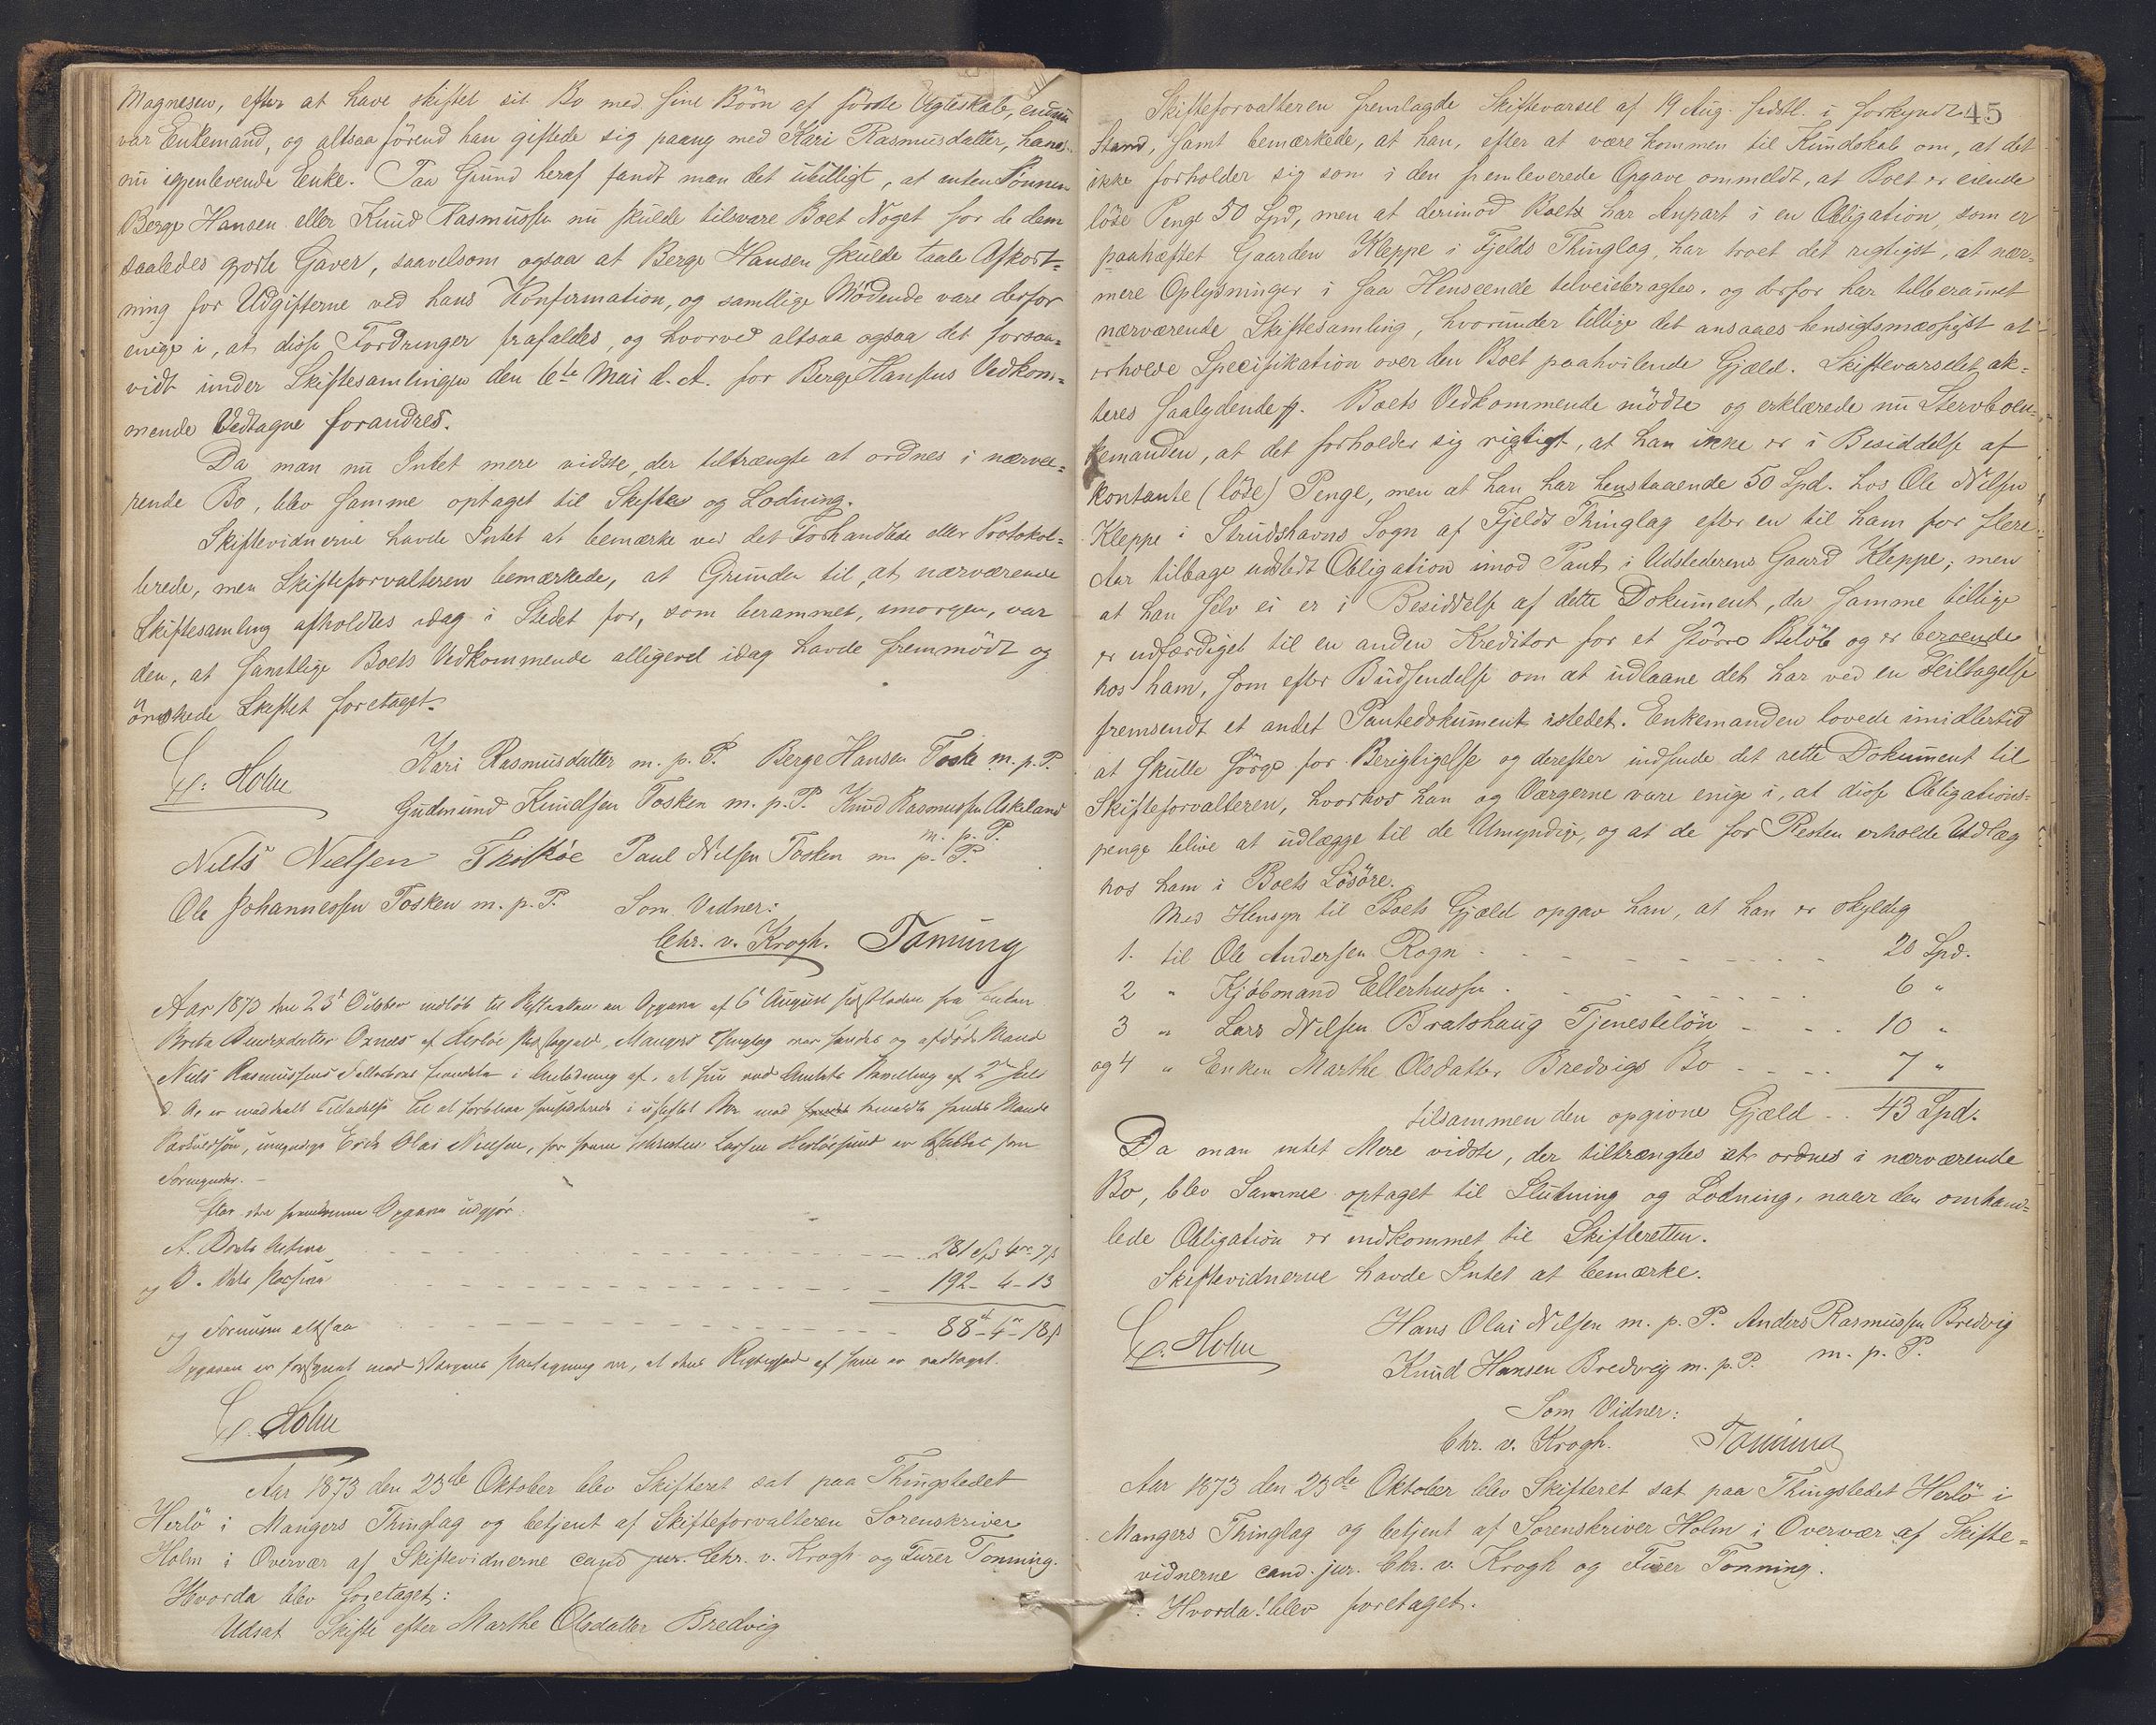 Magnesen, efter at have skiftet sit Bo med sine Börn af förste Egteskab, endnu
var Enkemand, og altsaa förend han giftede sig paany med Kari Rasmusdatter, hans
nu igjenlevende Enke. Paa Grund heraf fandt man det ubilligt, at enten Sönnen
Berge Hansen eller Knud Rasmussen nu skulde tilsvare Boet Noget for de dem
saaledes gjorte Gaver, saavelsom ogsaa at Berge Hansen skulde taale Afkort-
ning for Udgifterne ved hans Konfirmation, og samtlige Mödende vare derfor
enige i, at disse Fordringer frafaldes, og hvorved altsaa ogsaa det forsaa-
vidt under Skiftesamlingen den 6te Mai d. A. for Berge Hansens Vedkom-
mende Vedtagne forandres.
Da man nu Intet mere vidste, der tiltrængte at ordnes i nærvæ-
rende Bo, blev samme optaget til Skifte og Lodning.
Skiftevidnerne havde Intet at bemærke ved det Forhandlede eller Protokol-
lerede, men Skifteforvalteren bemærkede, at Grunden til, at nærværende
Skiftesamling afholdtes idag i Stedet for, som berammet, imorgen, var
den, at samtlige Boets Vedkommende alligevel idag havde fremmödt og
önskede Skiftet foretaget.
C. Holm
Kari Rasmusdatter m. p. P. Berge Hansen Toske m. p. P.
Gudmund Knudsen Tosken m. p. P. Knud Rasmussen Askeland
m. p. P.
Niels Nielsen Paul Nilsen Tosken m. p. P.
Ole Johannessen Tosken m. p. P. Som Vidner:
Chr. v. Krogh. Tonning
Aar 1873 den 23d Oktober indlöb til Skifteretten en Opgave af 6 August sidstleden fra Enken
Brita Andersdatter Oxnæs af Herlöe Præstegjeld, Mangers Thinglag over hendes og afdöde Mand
Niels Rasmussens Fællesboes i Anledning af, at hun ved Amtets Bevilling af
d. A. er meddelt Tilladelse til at forblive i uskiftet Bo med hendes Mands
umyndige Erik Olai Nielsen, for hvem Larsen Herlöesund er som
Formynder. -
Efter den Opgave udgjör:
A. Boets Aktiva 281
og B. dets Passiva 192 - 4 - 13
og Formuen altsaa 88 - 4 - 18
Opgaven er forsynet med Værgens Paategning om, at dens Rigtighed af ham er vedtaget.
C. Holm
Aar 1873 den 23de Oktober blev Skifteret sat paa Thingstedet
Herlö i Mangers Thinglag og betjent af Skifteforvalteren Sorenskriver
Holm i Overvær af Skiftevidnerne cand jur. Chr. v. Krogh og Furer Tonning.
Hvorda blev foretaget:
Udsat Skifte efter Marthe Olsdatter Bredvig
45
Skifteforvalteren fremlagde Skiftevarsel af 19 Aug. sidstl. i forkyndt
Stand, samt bemærkede, at han, efter at være kommen til Kundskab om, at det
ikke forholder sig som i den fremleverede Opgave ommeldt, at Boet er eiende
löse Penge 50 Spd, men at derimod Boet har Anpart i en Obligation, som er
paahæftet Gaarden Kleppe i Fjelds Thinglag, har troet det rigtigst, at nær-
mere Oplysninger i saa Henseende tilveiebragtes, og derfor har tilberamet
nærværende Skiftesamling, hvorunder tillige det ansaaes hensigtsmæssigst at
erholde Specifikation over den Boet paahvilende Gjæld. Skiftevarselet ak-
teres saalydende p. Boets Vedkommende mödte og erklærede nu Stervboen-
kemanden, at det forholder sig rigtigt, at han ikke er i Besiddelse af
kontante (löse) Penge, men at han har henstaaende 50 Spd. hos Ole Nilsen
Kleppe i Strudshavns Sogn af Fjelds Thinglag efter en til ham for flere
Aar tilbage udstedt Obligation imod Pant i Udstederens Gaard Kleppe, men
at han selv ei er i Besiddelse af dette Dokument, da samme tillige
er udfærdiget til en anden Kreditor for et större Belöb og er beroende
hos ham, som efter Budsendelse om at udlaane det har ved en Feiltagelse
fremsendt et andet Pantedokument istedet. Enkemanden lovede imidlertid
at skulle sörge for Berigtigelse og derefter indsende det rette Dokument til
Skifteforvalteren, hvorhos han og Værgerne vare enige i, at disse Obligations-
penge blive at udlægge til de Umyndige, og at de for Resten erholde Udlæg
hos ham i Boets Lösöre.
Med Hensyn til Boets Gjæld opgav han, at han er skyldig
1. til Ole Andersen Rogn 20 Spd.
2 " Kjöbmand Ellerhusen 6 "
3 " Lars Nilsen Bratshaug Tjenestelön 10 "
og 4 " Enken Marthe Olsdatter Bredvigs Bo 7 "
tilsammen den opgivne Gjæld 43 Spd.
Da man intet Mere vidste, der tiltrængtes at ordnes i nærværende
Bo, blev Samme optaget til Slutning og Lodning, naar den omhand-
lede Obligation er indkommet til Skifteretten.
Skiftevidnerne havde Intet at bemærke.
C. Holm
Hans Olai Nilsen m. p. P. Anders Rasmussen Bredvig
Knud Hansen Bredvig m. p. P. m. p. P.
Som Vidner:
Chr. v. Krogh. Tonning
Aar 1873 den 23de Oktober blev Skifteret sat paa Thingstedet Herlö i
Mangers Thinglag og betjent af Sorenskriver Holm i Overvær af Skifte-
vidnerne cand. jur. Chr. v. Krogh og Furer Tonning.
Hvorda! blev foretaget.